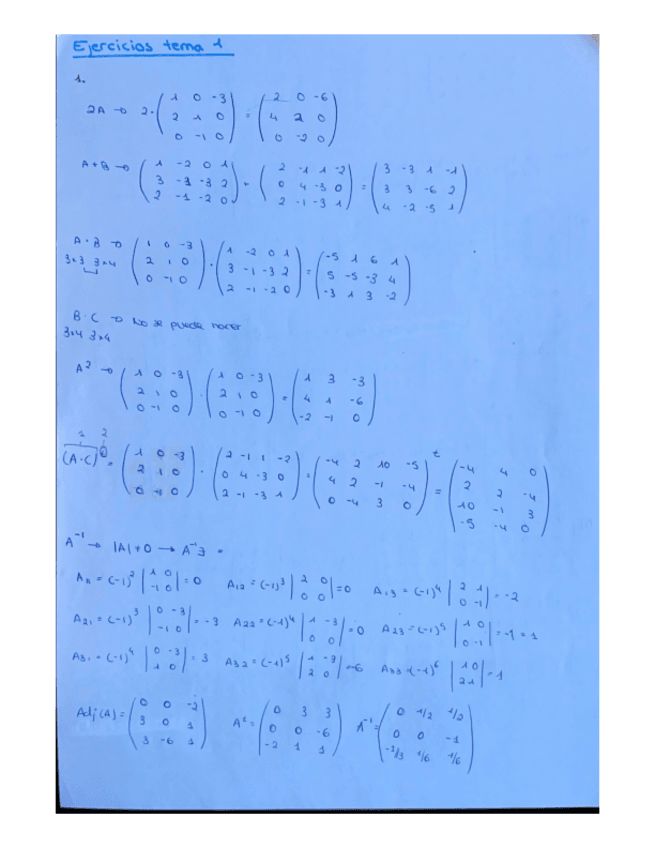 Ejercicios tema 1
1.
2A → 2· ( 1 0 -3 ; 2 1 0 ; 0 -1 0 ) = ( 2 0 -6 ; 4 2 0 ; 0 -2 0 )
A+B → ( 1 -2 0 1 ; 3 -1 -3 2 ; 2 -1 -2 0 ) + ( 2 -1 1 -2 ; 0 4 -3 0 ; 2 -1 -3 1 ) = ( 3 -3 1 -1 ; 3 3 -6 2 ; 4 -2 -5 1 )
A·B → ( 1 0 -3 ; 2 1 0 ; 0 -1 0 ) · ( 1 -2 0 1 ; 3 -1 -3 2 ; 2 -1 -2 0 ) = ( -5 1 6 1 ; 5 -5 -3 4 ; -3 1 3 -2 )
3x3 3x4
B·C → No se puede hacer
3x4 3x4
A² → ( 1 0 -3 ; 2 1 0 ; 0 -1 0 ) · ( 1 0 -3 ; 2 1 0 ; 0 -1 0 ) = ( 1 3 -3 ; 4 1 -6 ; -2 -1 0 )
1 2
(A·C)ᵗ = ( 1 0 -3 ; 2 1 0 ; 0 -1 0 ) · ( 2 -1 1 -2 ; 0 4 -3 0 ; 2 -1 -3 1 ) = ( -4 2 10 -5 ; 4 2 -1 -4 ; 0 -4 3 0 )ᵗ = ( -4 4 0 ; 2 2 -4 ; 10 -1 3 ; -5 -4 0 )
A⁻¹ → |A| ≠ 0 → A⁻¹∃ =
A11 = (-1)² | 1 0 ; -1 0 | = 0 A12 = (-1)³ | 2 0 ; 0 0 | = 0 A13 = (-1)⁴ | 2 1 ; 0 -1 | = -2
A21 = (-1)³ | 0 -3 ; -1 0 | = -3 A22 = (-1)⁴ | 1 -3 ; 0 0 | = 0 A23 = (-1)⁵ | 1 0 ; 0 -1 | = -1 = 1
A31 = (-1)⁴ | 0 -3 ; 1 0 | = 3 A32 = (-1)⁵ | 1 -3 ; 2 0 | = -6 A33 = (-1)⁶ | 1 0 ; 2 1 | = 1
Adj(A) = ( 0 0 -2 ; 3 0 1 ; 3 -6 1 ) Aᵗ = ( 0 3 3 ; 0 0 -6 ; -2 1 1 ) A⁻¹ = ( 0 1/2 1/2 ; 0 0 -1 ; -1/3 1/6 1/6 )